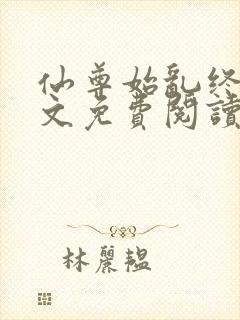 仙尊始亂終
文免費閱讀
林麗韞